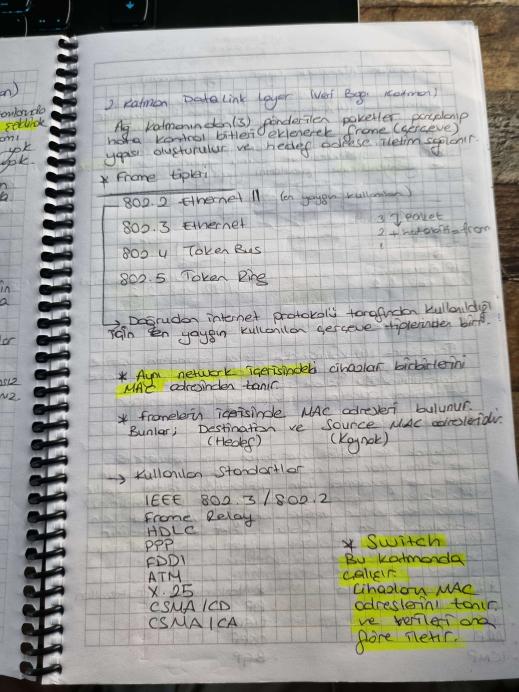 2. Katman Data Link Layer (Veri Bağı Katmanı)
Ağ katmanından (3) gönderilen paketler parçalanıp
hata kontrol bitleri eklenerek frame (çerçeve)
yapısı oluşturulur ve hedef adrese iletim sağlanır.
* Frame tipleri
802.2 Ethernet II (en yaygın kullanılan)
802.3 Ethernet
3 paket
2 +
1
802.4 Token Bus
802.5 Token Ring
→ Doğrudan internet protokolü tarafından kullanıldığı
için en yaygın kullanılan çerçeve tiplerinden biri.
* Aynı network içerisindeki cihazlar birbirlerini
MAC adresinden tanır.
* Framelerin içerisinde MAC adresleri bulunur.
Bunlar; Destination ve Source MAC adresleridir.
(Hedef) (Kaynak)
→ Kullanılan Standartlar
IEEE 802.3 / 802.2
Frame Relay
HDLC
PPP
FDDI
ATM
X.25
CSMA/CD
CSMA/CA
* Switch
Bu katmanda
çalışır.
Cihazların MAC
adreslerini tanır
ve verileri ona
göre iletir.